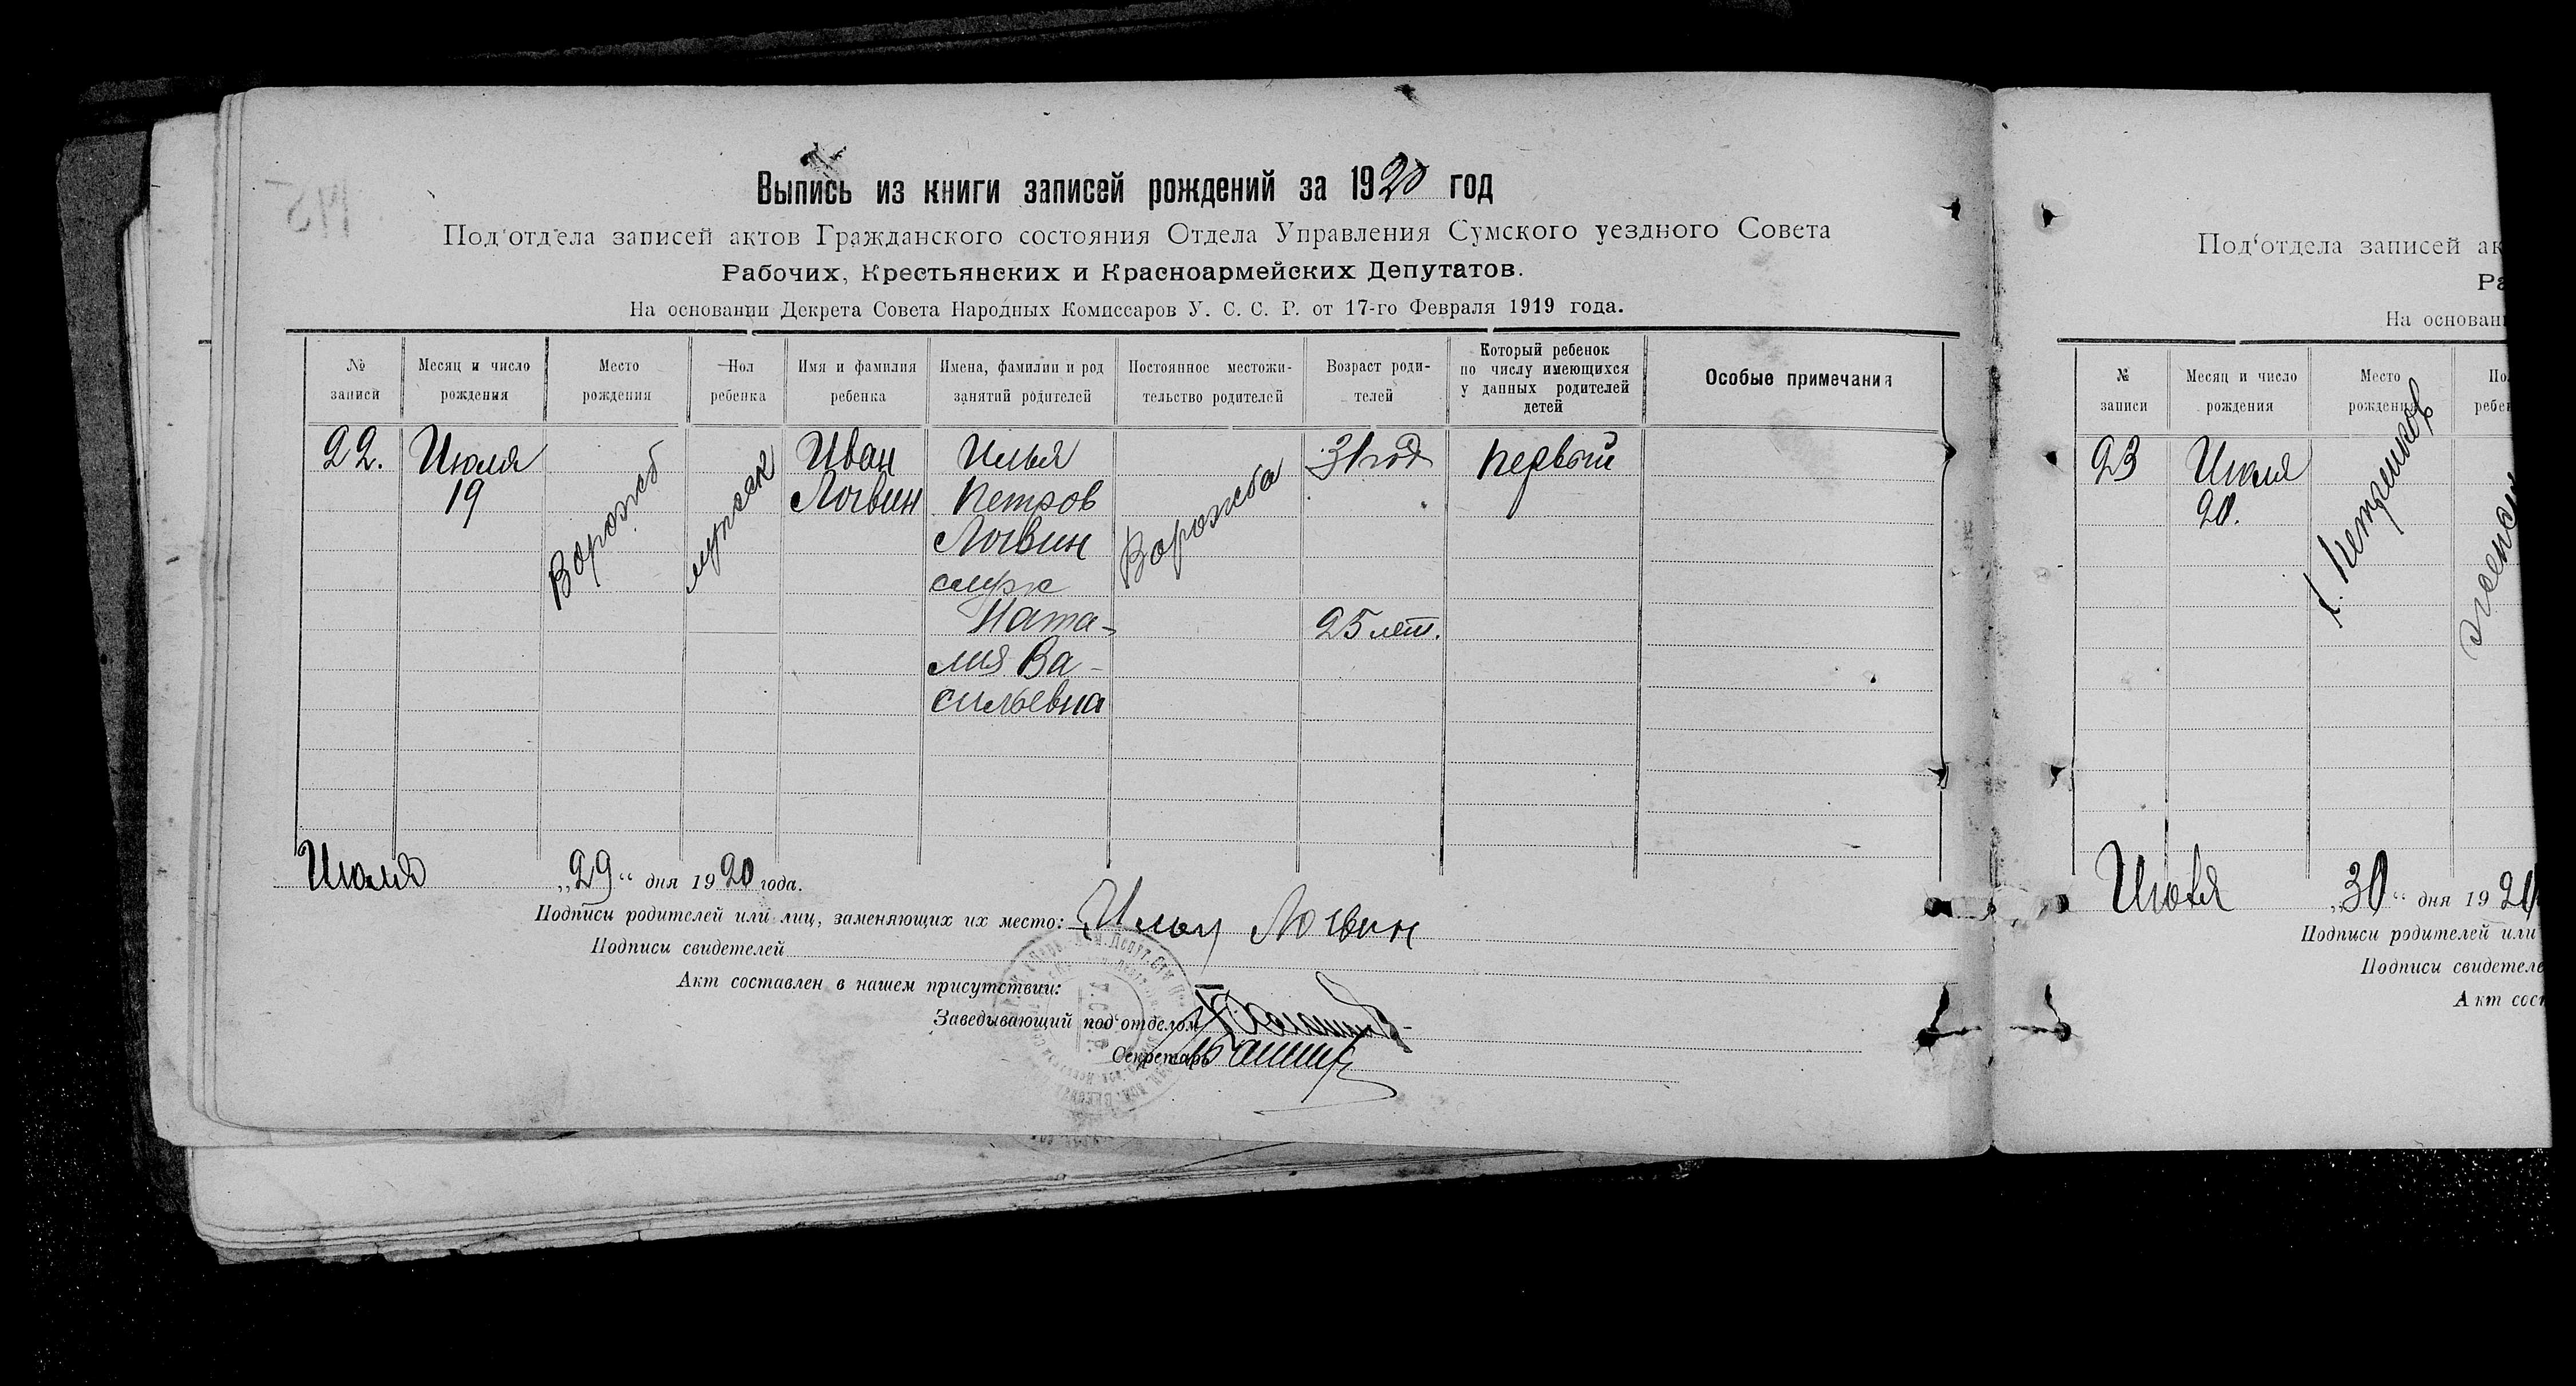 Выпись из книги записей рождений за 1920 год
Под'отдела записей актов Гражданского состояния Отдела Управления Сумского уездного Совета
Рабочих, Крестьянских и Красноармейских Депутатов.
На основании Декрета Совета Народных Комиссаров У. С. С. Р. от 17-го Февраля 1919 года.
№ записи
Месяц и число рождения
Место рождения
Пол ребенка
Имя и фамилия ребенка
Имена, фамилии и род занятий родителей
Постоянное местожительство родителей
Возраст родителей
Который ребенок по числу имеющихся у данных родителей детей
Особые примечания
22.
Июля
19
Ворожб
мужск
Иван
Логвин
Илья
Петров
Логвин
служ
Ната-
лия Ва-
сильевна
Ворожба
31 год
25 лет.
Первый
Июля „29“ дня 1920 года.
Подписи родителей или лиц, заменяющих их место: Илья Логвин
Подписи свидетелей
Акт составлен в нашем присутствии:
Заведывающий под'отделом
Секретарь
Под'отдела записей ак
Ра
На основани
№ записи
Месяц и число рождения
Место рождения
По
ребен
23
Июля
20.
женск
Июля „30“ дня 1920
Подписи родителей или
Подписи свидетеле
Акт сост